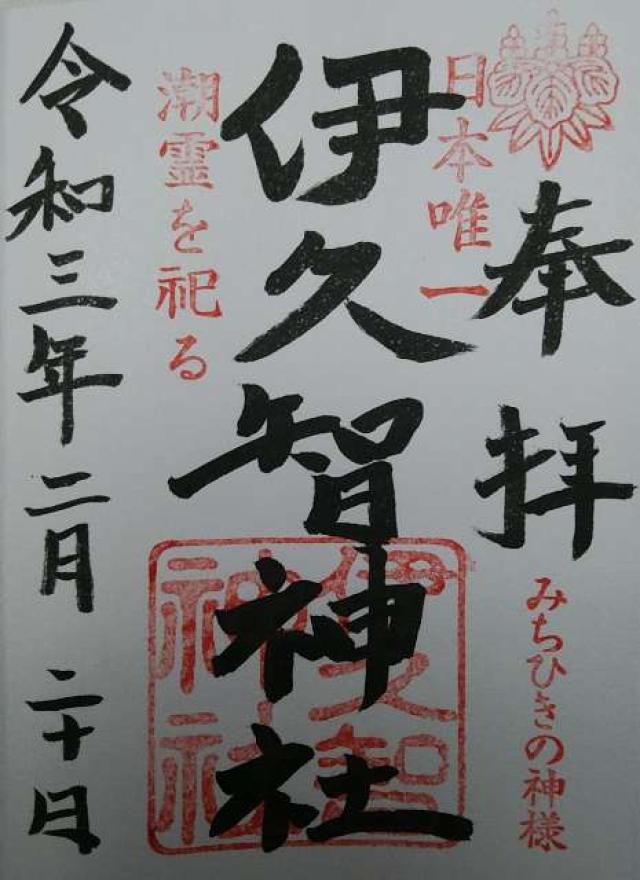 奉拝
みちひきの神様
日本唯一
伊久智神社
潮霊を祀る
令和三年二月二十日
伊久智
神社